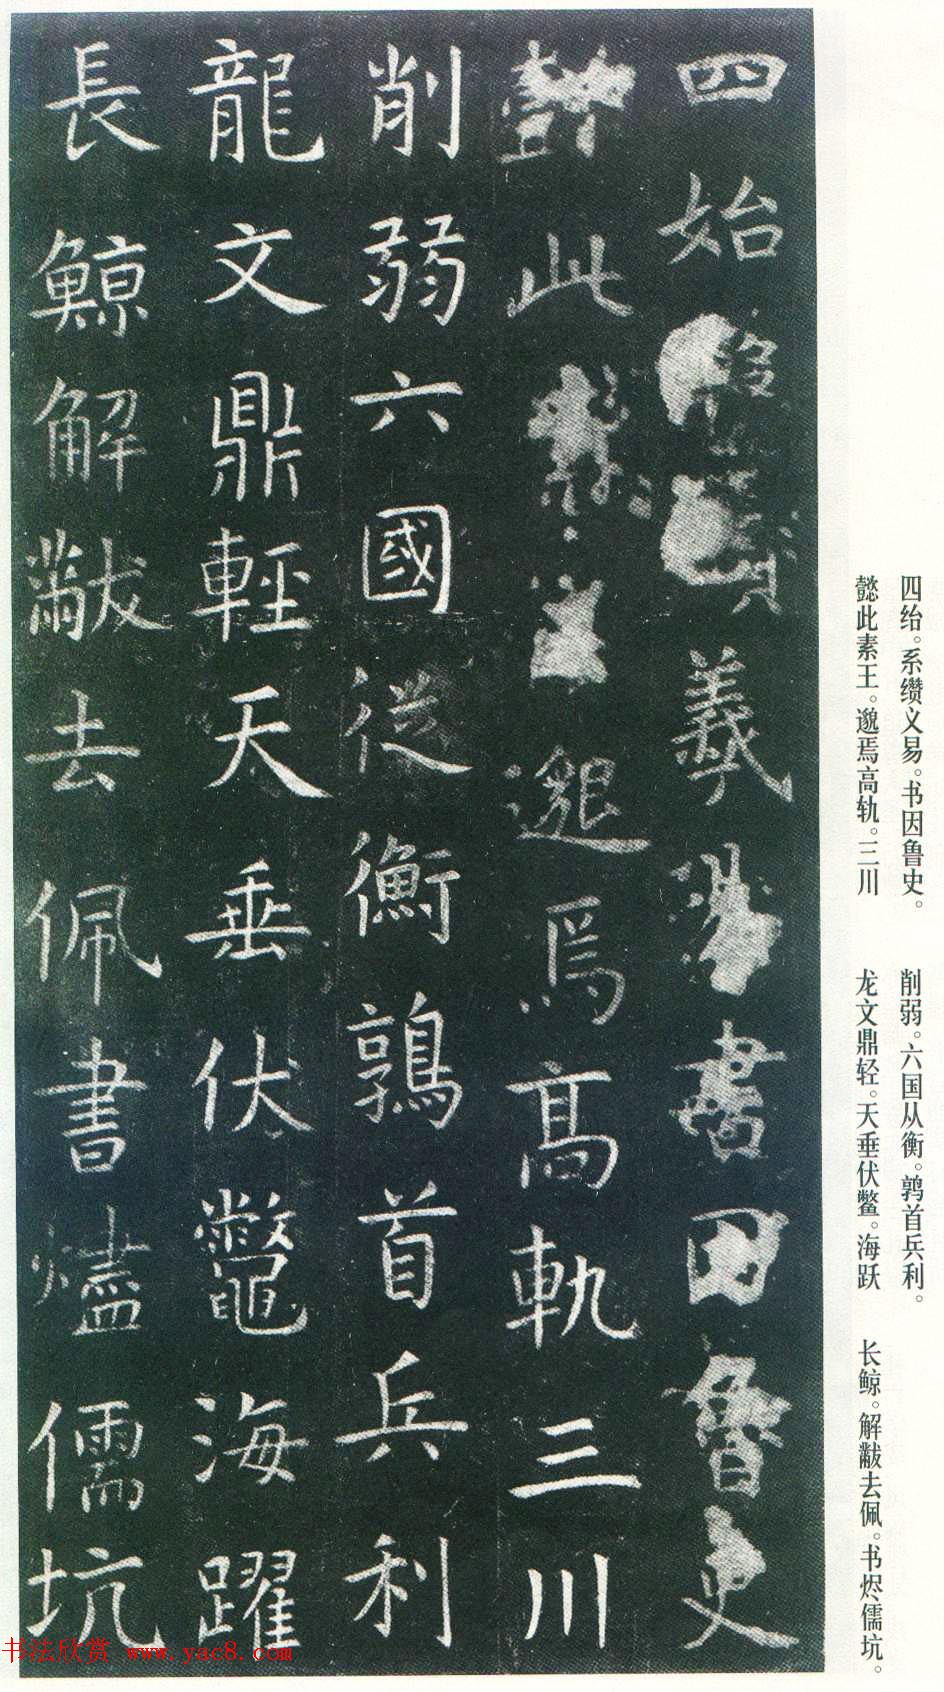 四绐。系缵文易。书因鲁史。
懿此素王。邈焉高轨。三川
削弱。六国从衡。鹑首兵利。
龙文鼎轻。天垂伏鳖。海跃
长鲸。解黻去佩。书烬儒坑。
四始羲易書因魯史
懿此素王邈焉高軌三川
削弱六國從衡鶉首兵利
龍文鼎輕天垂伏鼈海躍
長鯨解黻去佩書燼儒坑
书法欣赏 www.yac8.com